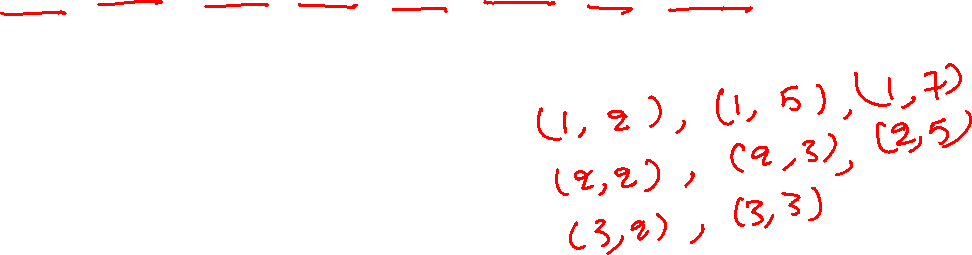 (1, 2), (1, 5), (1, 7)
(2, 2), (2, 3), (2, 5)
(3, 2), (3, 3)